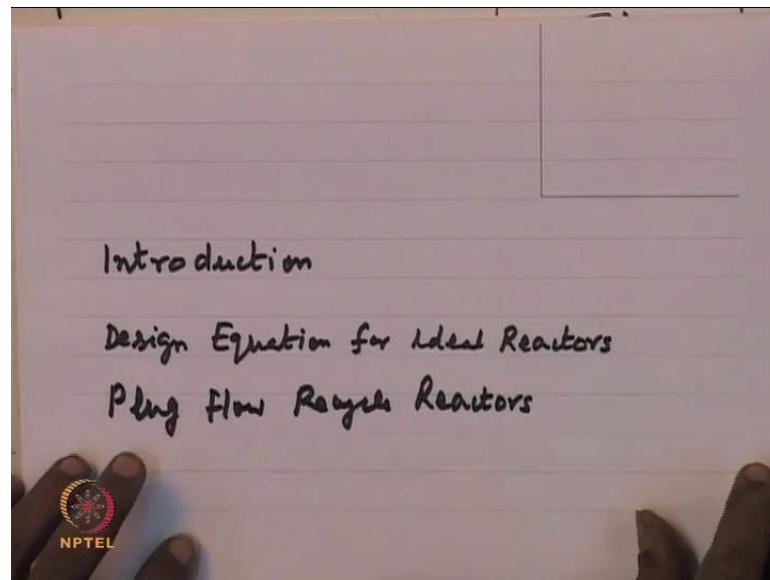 Introduction
Design Equation for Ideal Reactors
Plug Flow Recycle Reactors
NPTEL